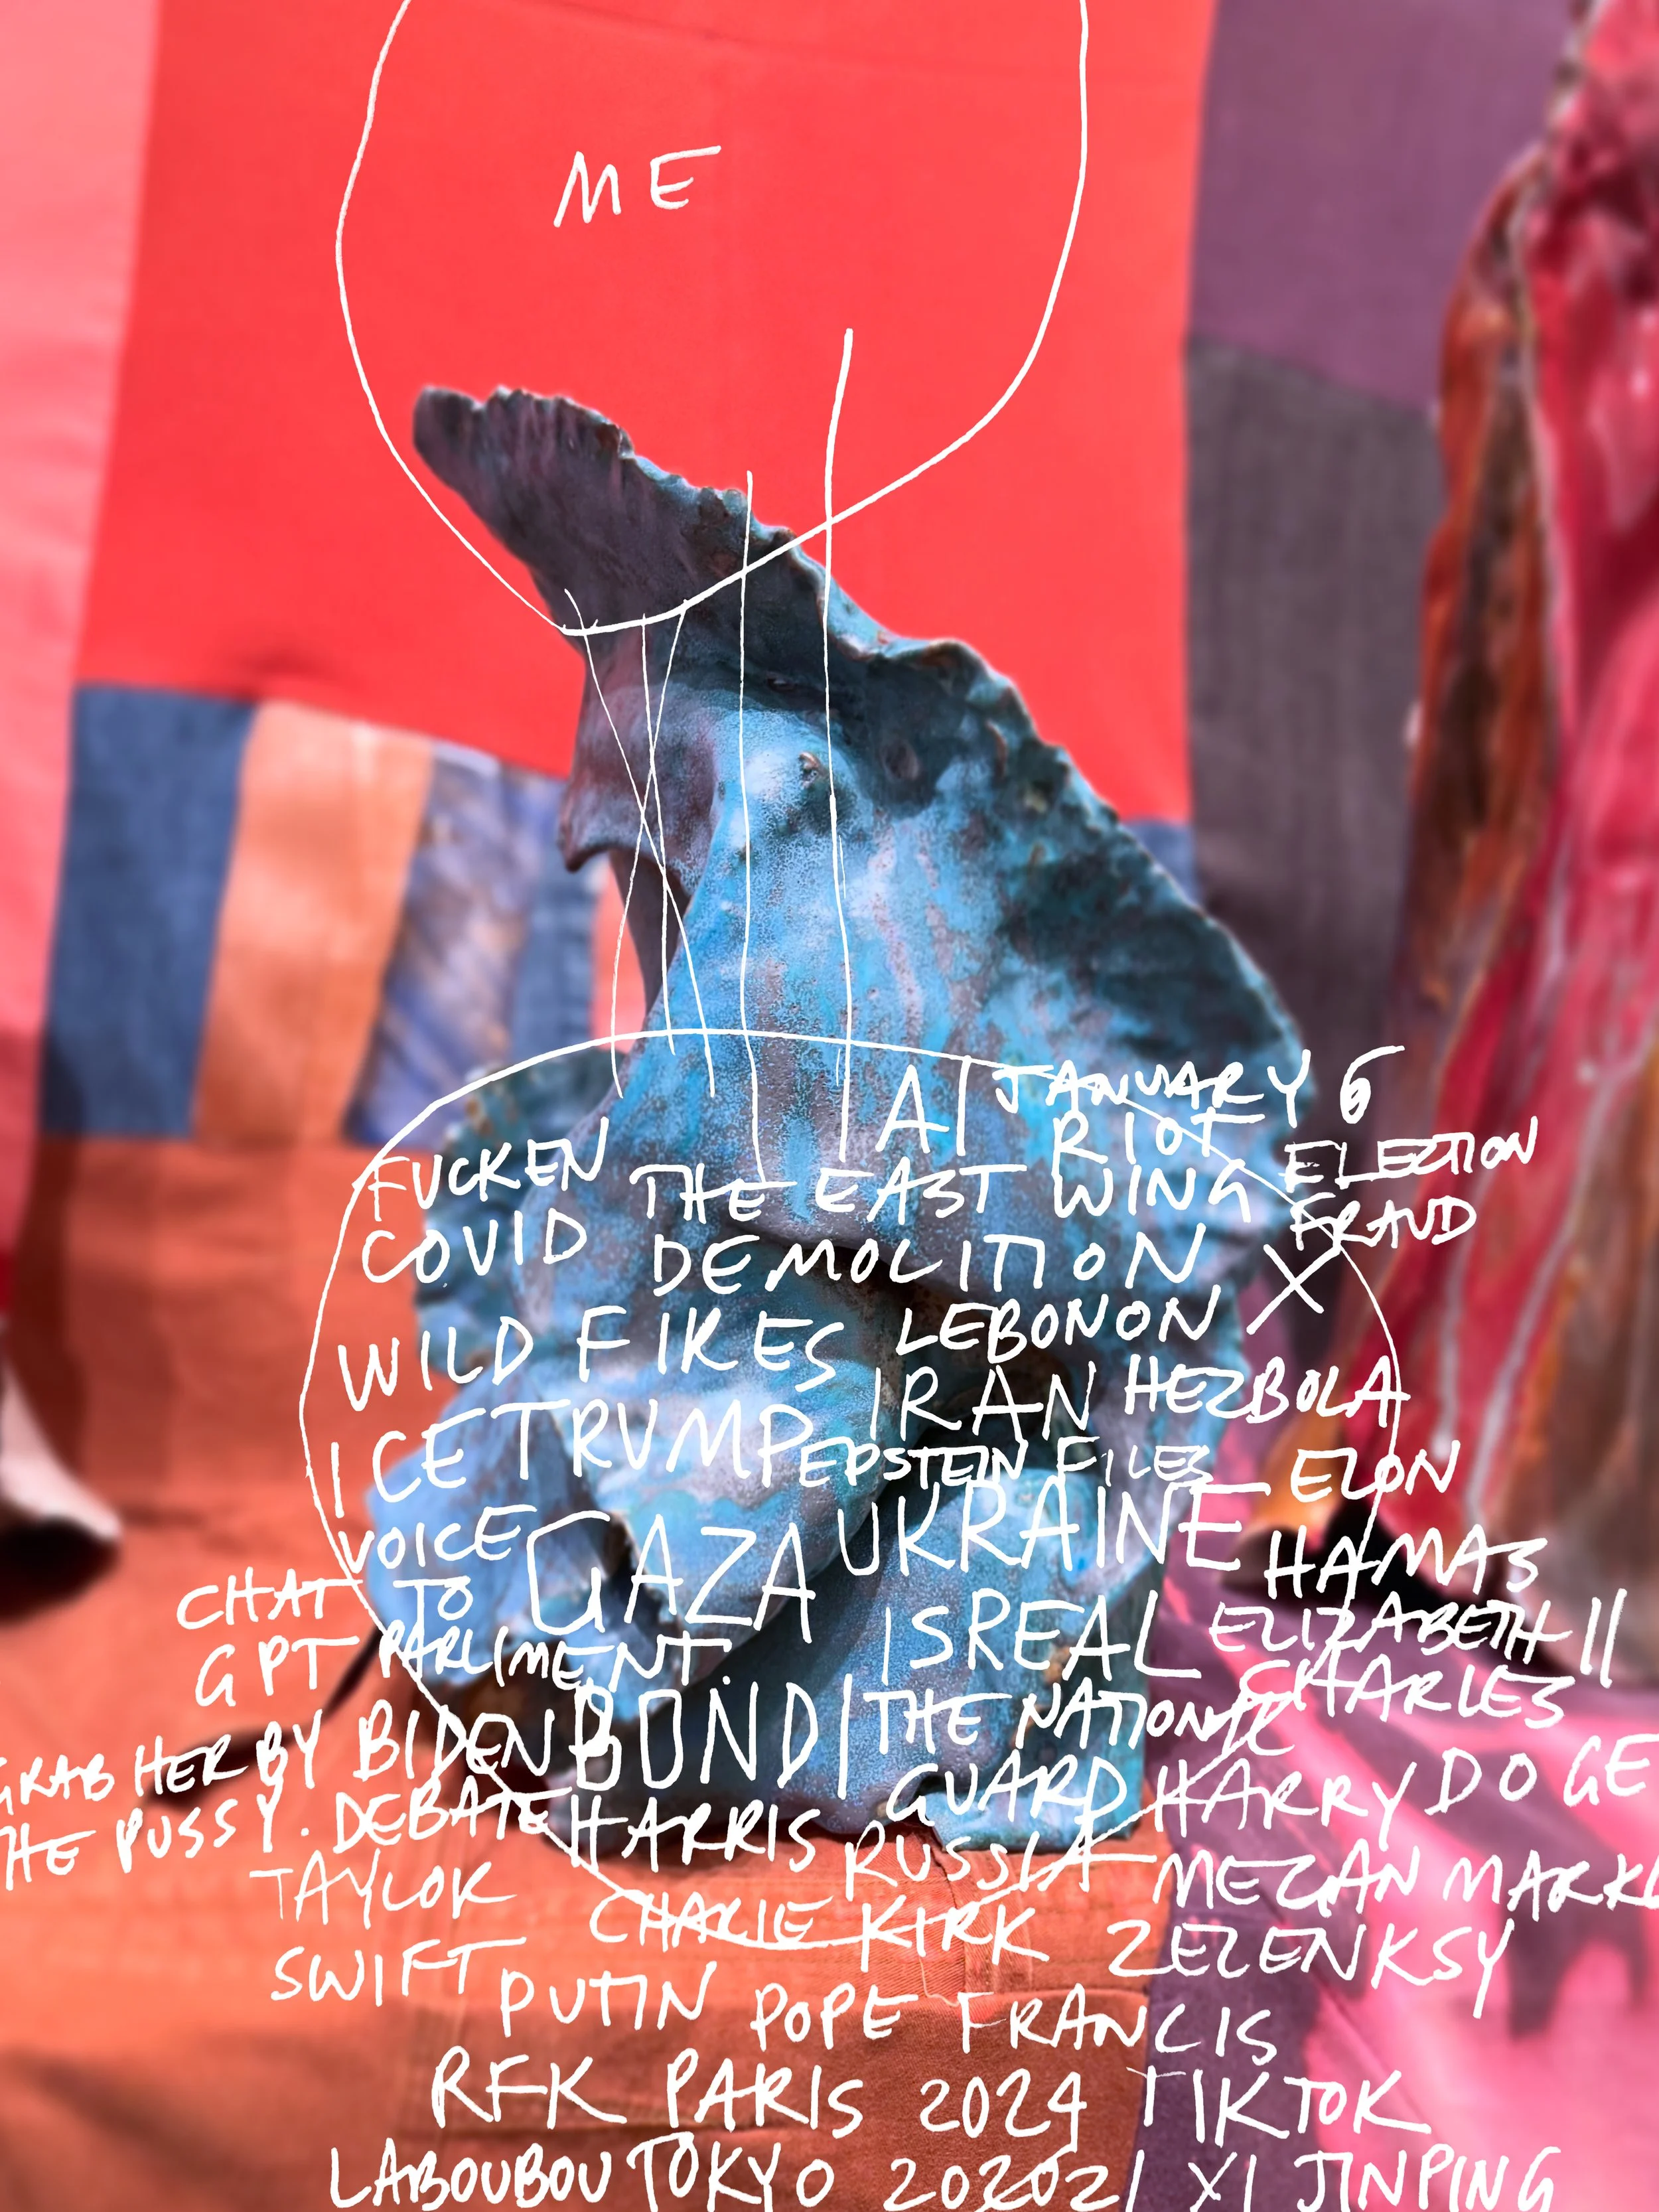 ME
AI JANUARY 6
FUCKEN RIOT ELECTION
COVID THE EAST WING FRAUD
DEMOLITION X
WILD FIRES LEBONON
ICE TRUMP IRAN HEZBOLA
EPSTEIN FILES ELON
VOICE GAZA UKRAINE HAMAS
CHAT TO ISREAL ELIZABETH II
GPT PARLIMENT. CHARLES
GRAB HER BY BIDEN BONDI THE NATIONAL
THE PUSSY. DEBATE HARRIS GUARD HARRY DOGE
TAYLOR RUSSIA MEGAN MARKL
SWIFT CHARLIE KIRK ZELENKSY
PUTIN POPE FRANCIS
RFK PARIS 2024 TIKTOK
LABOUBOU TOKYO 202021 XI JINPING